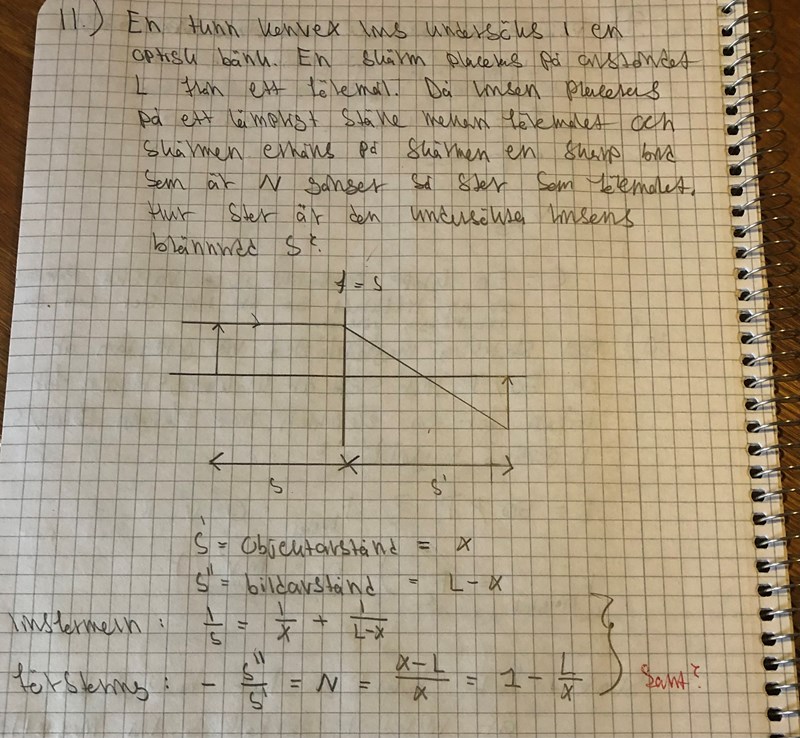 11.) En tunn konvex lins undersöks i en
optisk bänk. En skärm placeras på avståndet
L från ett föremål. Då linsen placeras
på ett lämpligt ställe mellan föremålet och
skärmen erhålls på skärmen en skarp bild
som är N gånger så stor som föremålet.
Hur stor är den undersökta linsens
brännvidd S?
f = s
S S'
S' = Objektavstånd = x
S'' = bildavstånd = L-x
linsformeln: 1/s = 1/x + 1/(L-x)
förstoring: - S''/S' = N = (x-L)/x = 1 - L/x Sant?